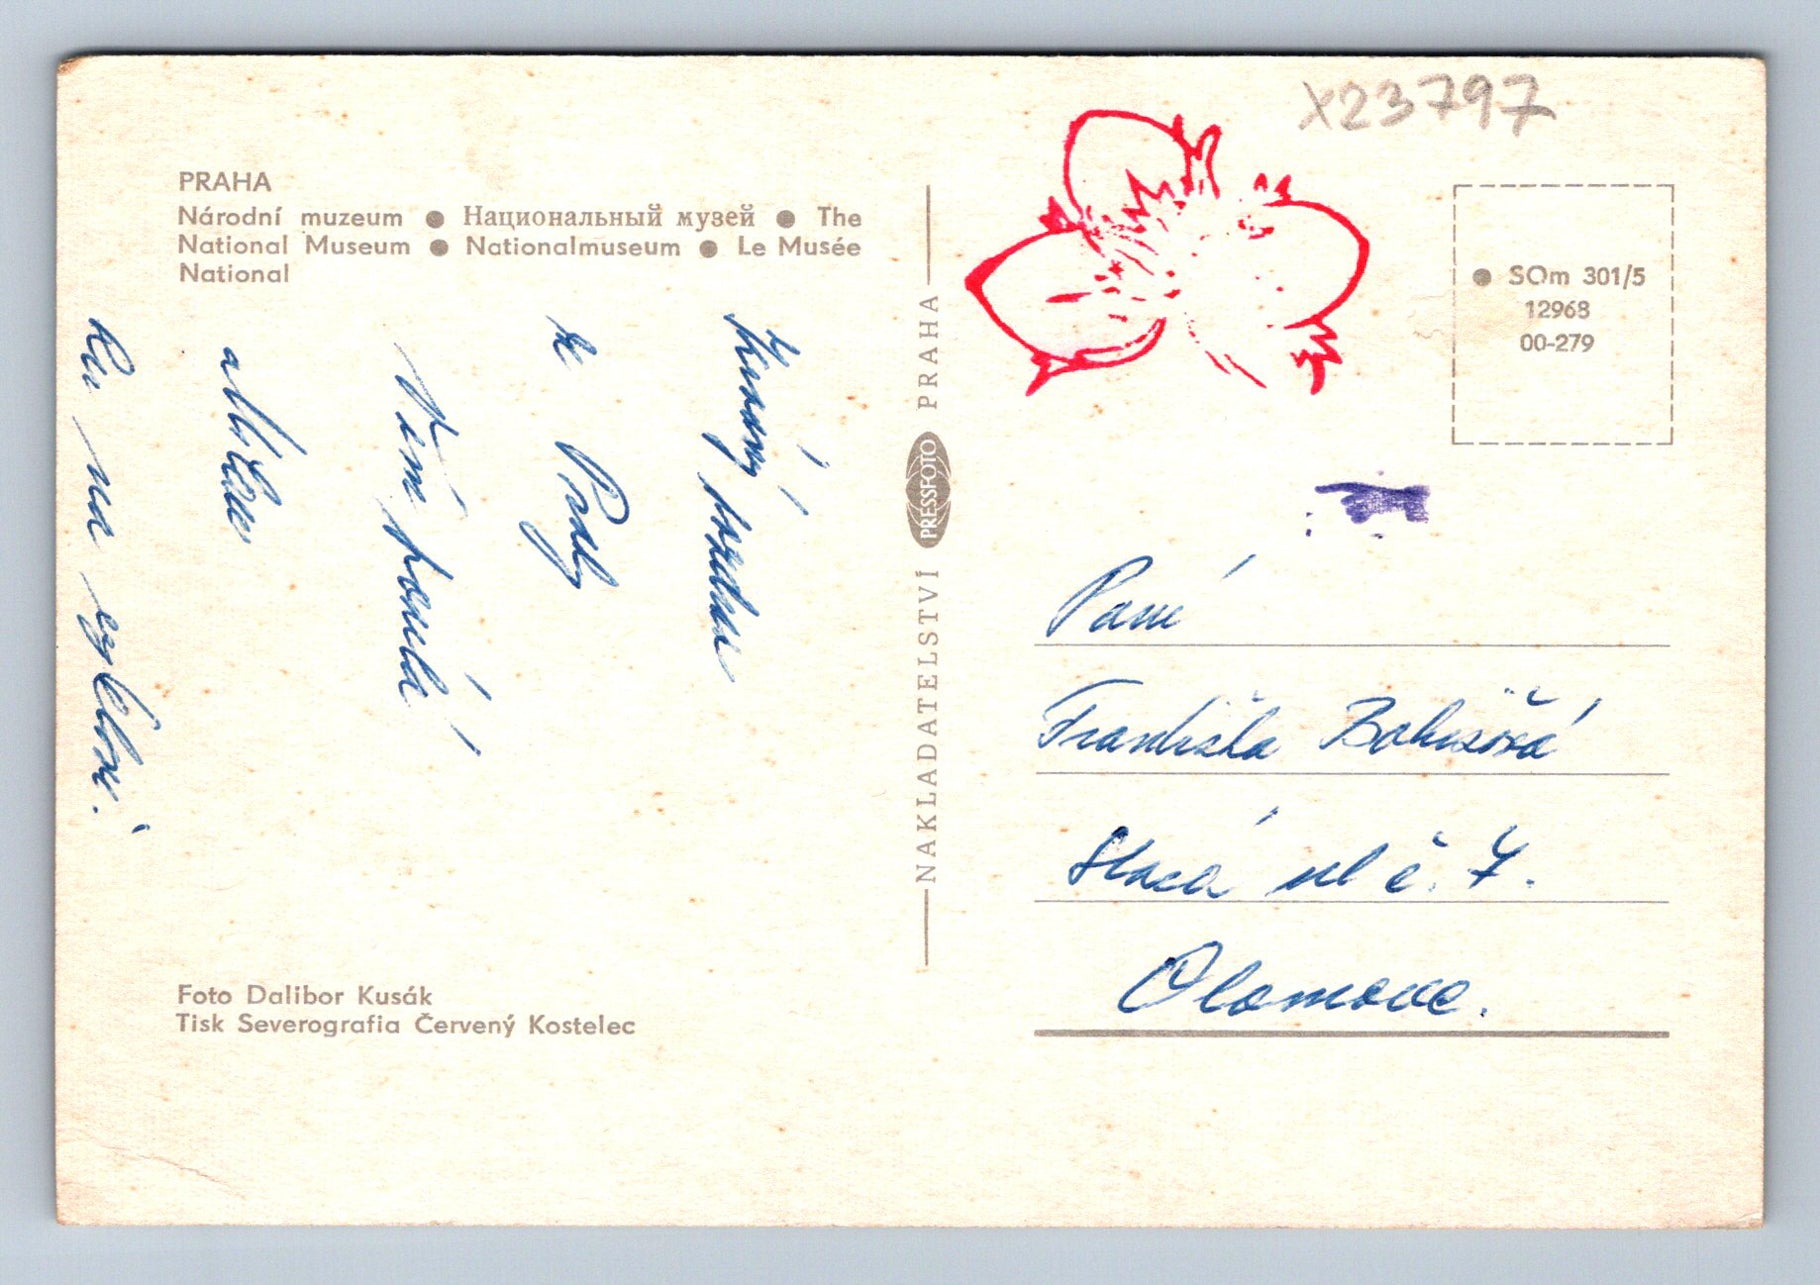 X23797
PRAHA
Národní muzeum ● Национальный музей ● The
National Museum ● Nationalmuseum ● Le Musée
National
Krásný pozdrav
z Prahy
Vám posílá
na
NAKLADATELSTVÍ PRESSFOTO PRAHA
● SOm 301/5
12968
00-279
Paní
Františka
ul č. 7.
Olomouc.
Foto Dalibor Kusák
Tisk Severografia Červený Kostelec